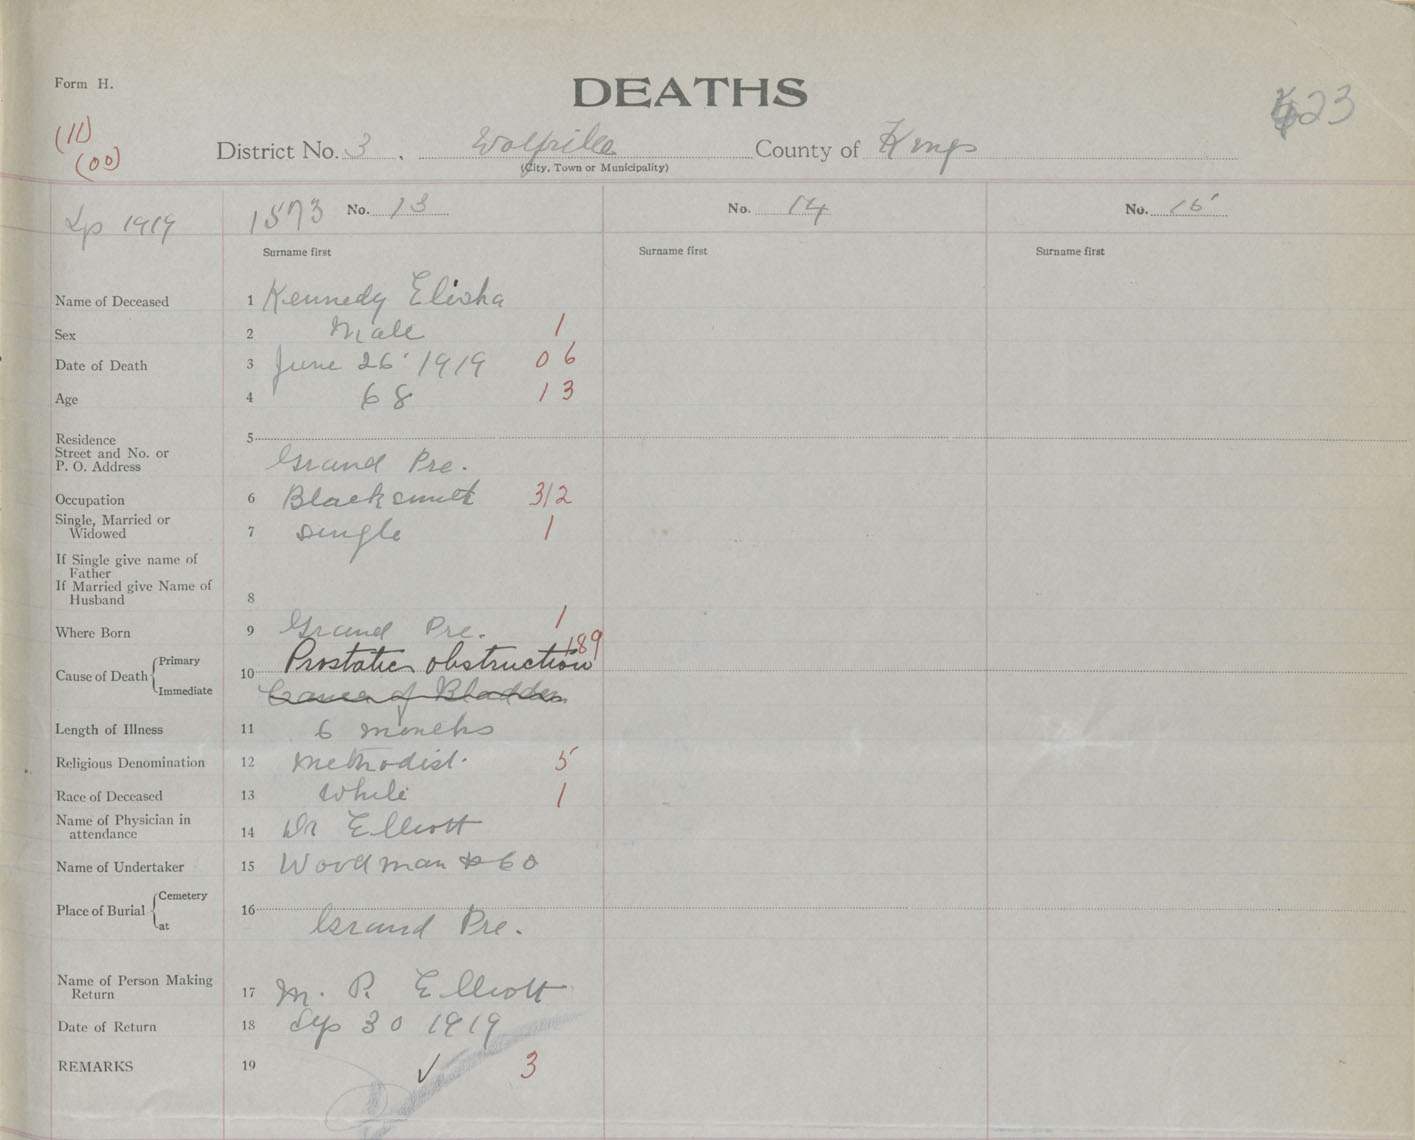 Form H.
DEATHS
523
(11)
(00)
District No. 3, Wolfville County of Kings
(City, Town or Municipality)
Sep 1919 1573 No. 13 No. 14 No. 15
Surname first Surname first Surname first
Name of Deceased 1 Kennedy Elisha
Sex 2 Male 1
Date of Death 3 June 26 1919 06
Age 4 68 13
Residence 5
Street and No. or
P. O. Address Grand Pre.
Occupation 6 Blacksmith 312
Single, Married or
Widowed 7 Single 1
If Single give name of
Father
If Married give Name of
Husband 8
Where Born 9 Grand Pre. 1
189
Cause of Death Primary 10 Prostatic obstruction
Immediate Cancer of Bladder
Length of Illness 11 6 months
Religious Denomination 12 Methodist. 5
Race of Deceased 13 White 1
Name of Physician in
attendance 14 Dr Elliott
Name of Undertaker 15 Woodman & Co
Place of Burial Cemetery 16
at Grand Pre.
Name of Person Making
Return 17 M. P. Elliott
Date of Return 18 Sep 30 1919
REMARKS 19 ✓ 3